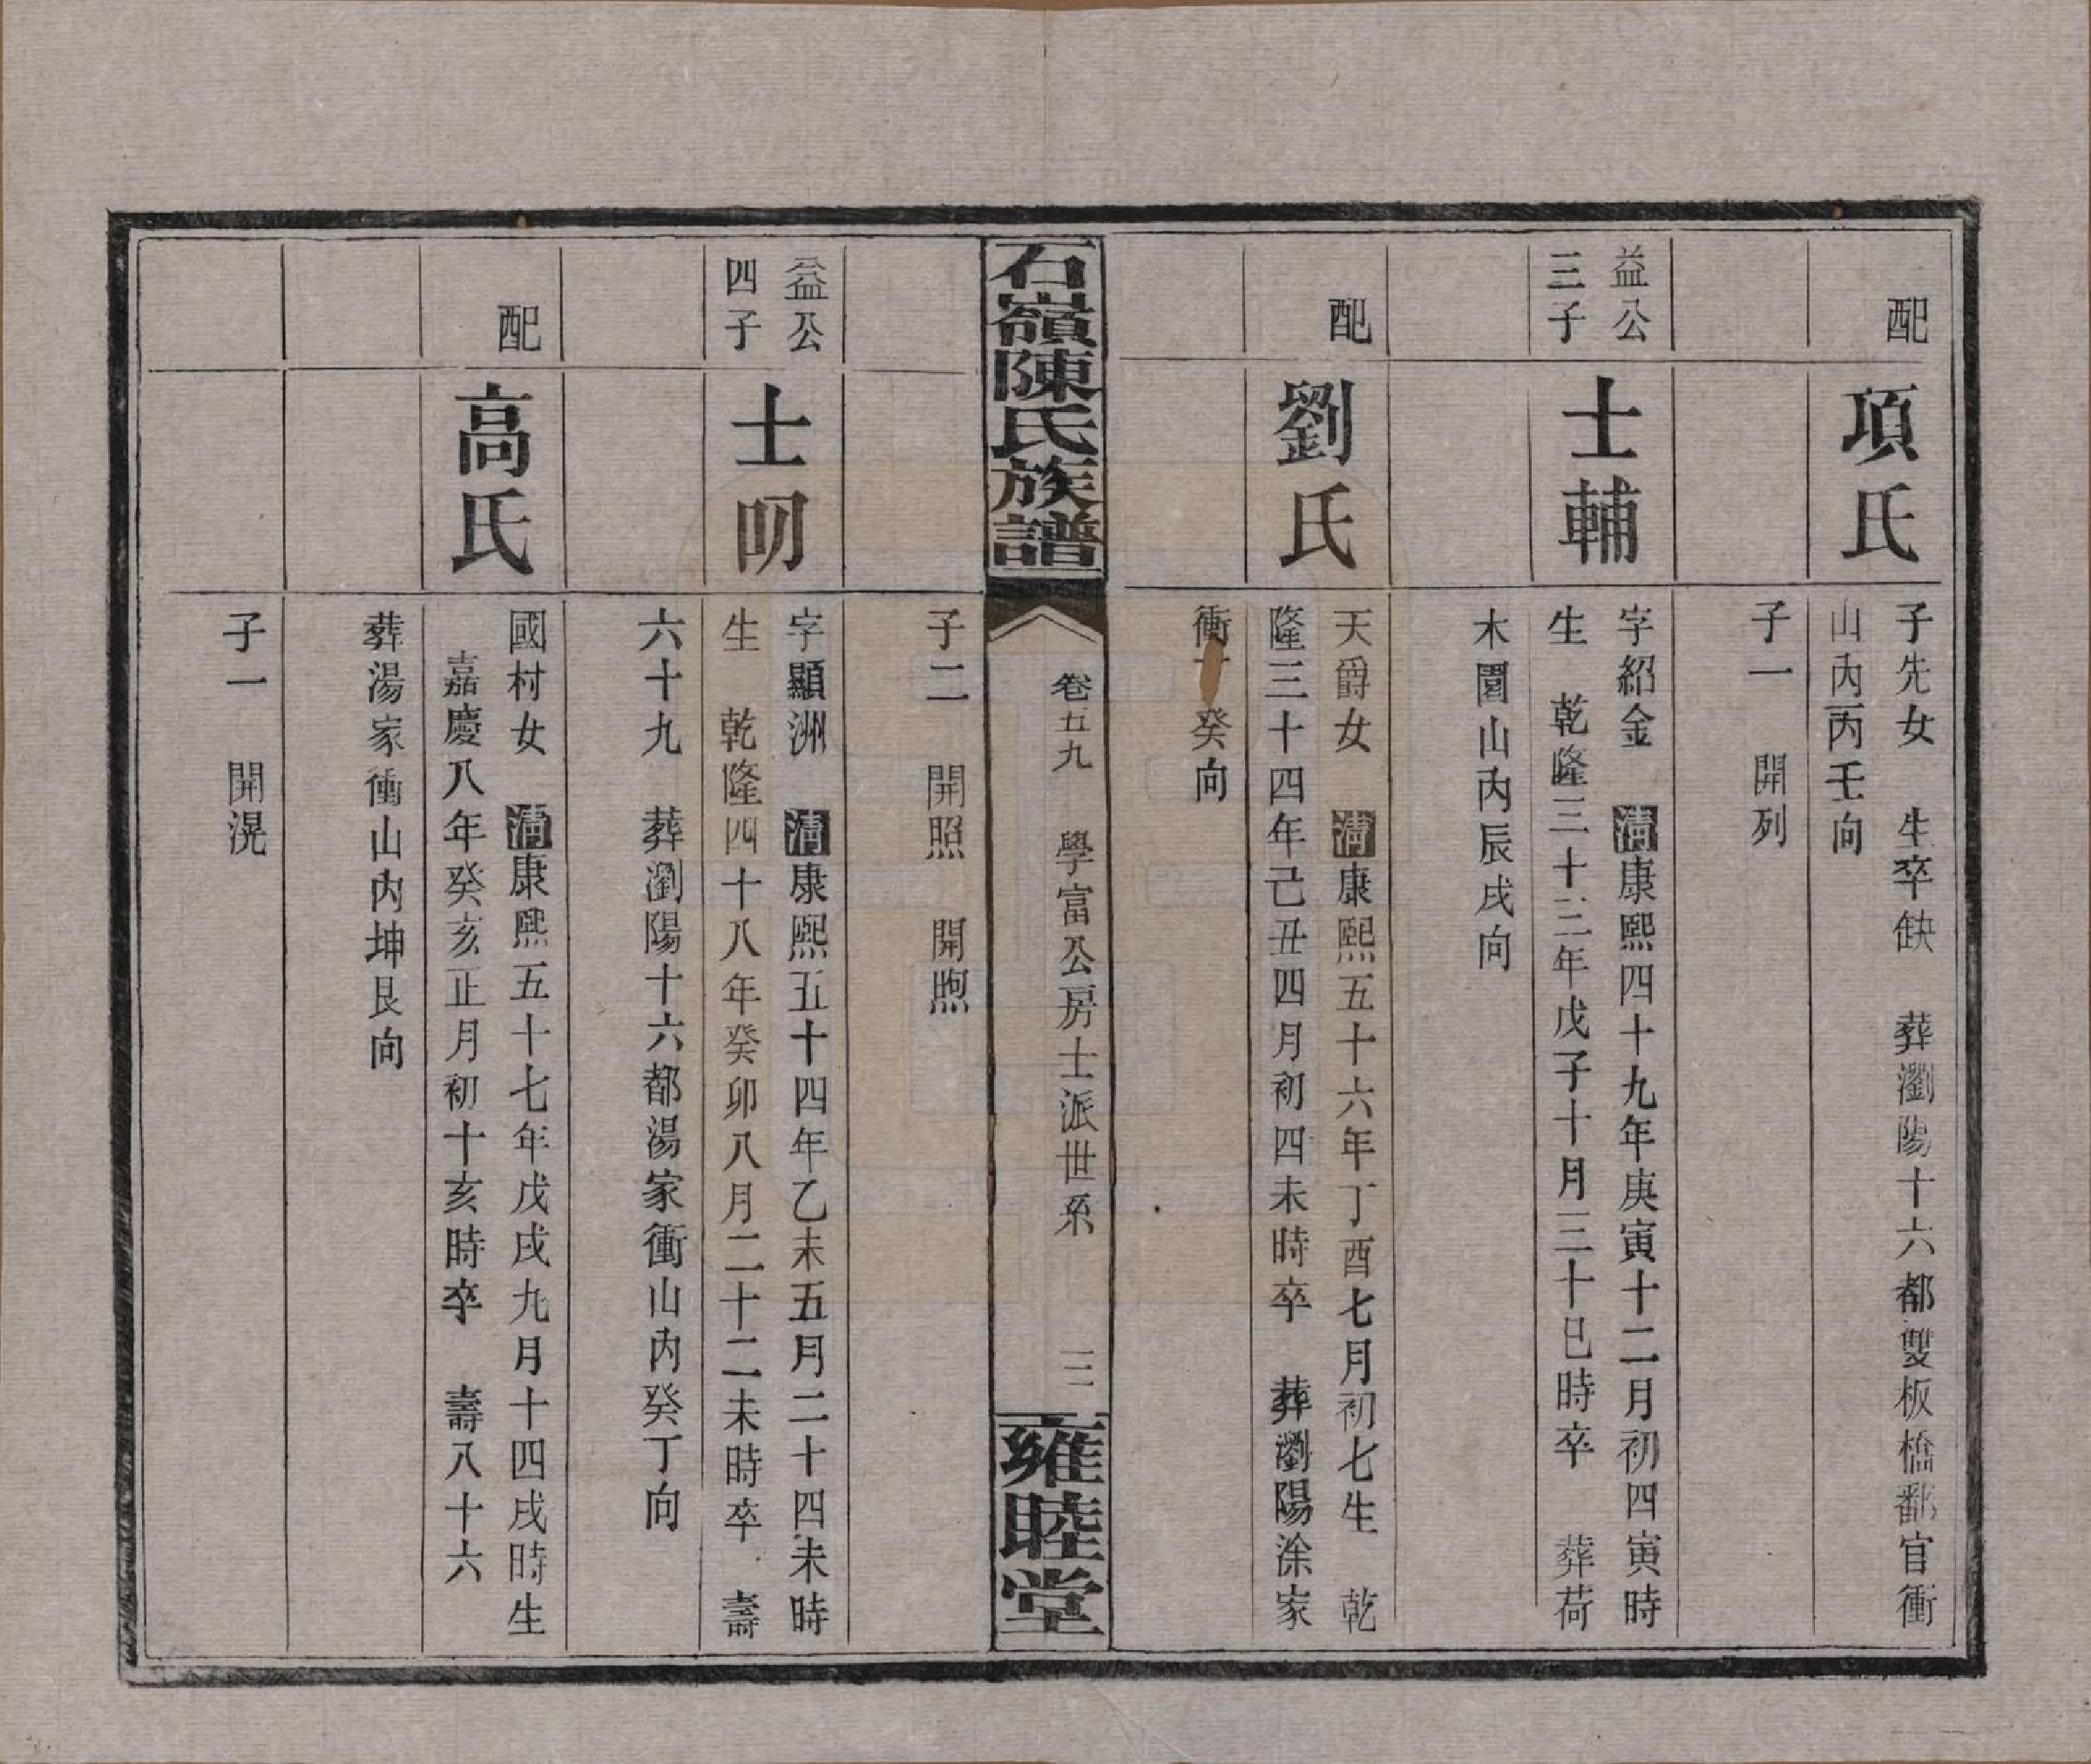 配
項氏
子先女　生卒缺　葬瀏陽十六都雙板橋鄱官衝
山內丙壬向
子一　開列
益公
三子
士輔
字紹金　清康熙四十九年庚寅十二月初四寅時
生　乾隆三十三年戊子十月三十巳時卒　葬荷
木園山內辰戌向
配
劉氏
天爵女　清康熙五十六年丁酉七月初七生　乾
隆三十四年己丑四月初四未時卒　葬瀏陽涂家
衝丁癸向
石嶺陳氏族譜
卷五九　學富公房士派世系　三
雍睦堂
子二　開照　開煦
益公
四子
士明
字顯洲　清康熙五十四年乙未五月二十四未時
生　乾隆四十八年癸卯八月二十二未時卒　壽
六十九　葬瀏陽十六都湯家衝山內癸丁向
配
高氏
國村女　清康熙五十七年戊戌九月十四戌時生
嘉慶八年癸亥正月初十亥時卒　壽八十六
葬湯家衝山內坤艮向
子一　開滉